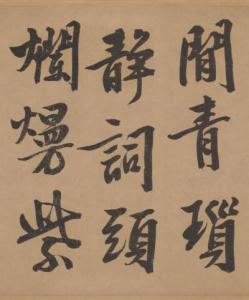 閒青瑣
靜詞頭
爛熳紫